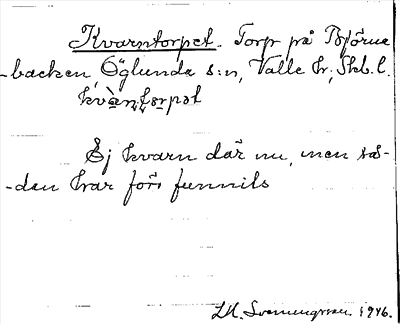 Kvarntorpet. Torp på Björne-
backen, Öglunda s:n, Valle hr, Skb.l.
kvà̀n̥ţo̥rpət
Ej kvarn där nu, men så-
dan har förr funnits
1946.